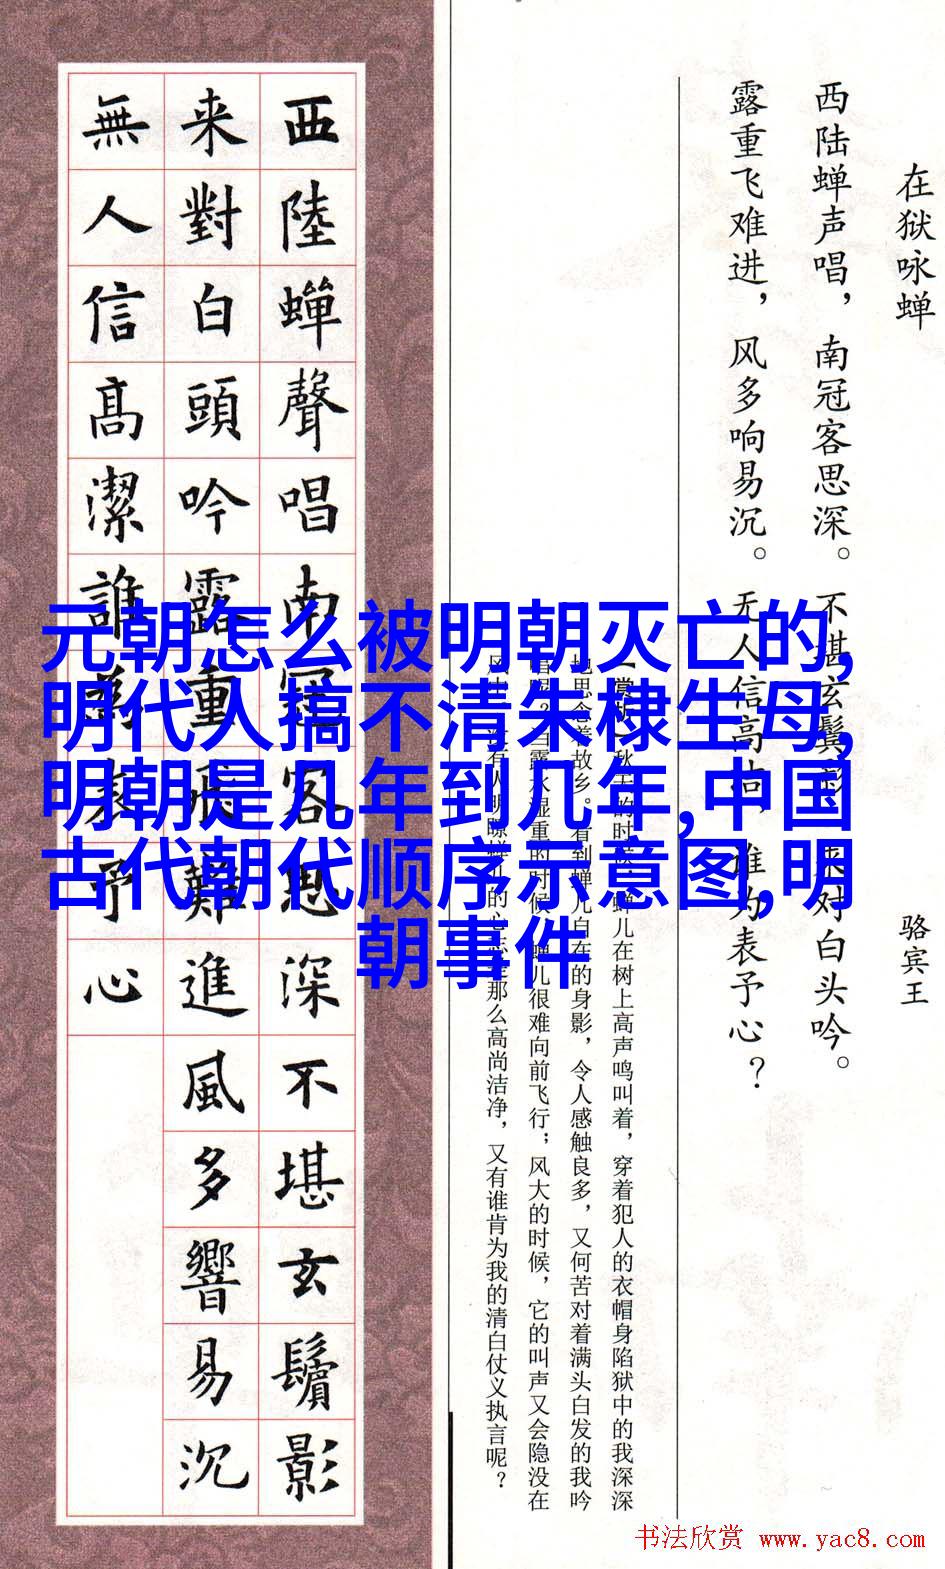 在狱咏蝉
骆宾王
西陆蝉声唱，南冠客思深。不堪玄鬓影，来对白头吟。
露重飞难进，风多响易沉。无人信高洁，谁为表予心？
【赏析】秋天的时候，蝉儿在树上高声鸣叫着，穿着犯人的衣帽身陷狱中的我深深
地思念着故乡。看到蝉儿自在的身影，令人感触良多，又何苦对着满头白发的我吟
唱呢？当露水湿重的时候，蝉儿很难向前飞行；风大的时候，它的叫声又会隐没在
风中。没有人明瞭蝉儿的心志是那么高尚洁净，又有谁肯为我的清白仗义执言呢？
西陸蟬聲唱南冠客思深不堪玄鬢影
来對白頭吟露重飛難進風多響易沉
無人信髙潔誰為表予心
元朝怎么被明朝灭亡的,
明代人搞不清朱棣生母,
明朝是几年到几年,中国
古代朝代顺序示意图,明
朝事件
书法欣赏 www.yac8.com